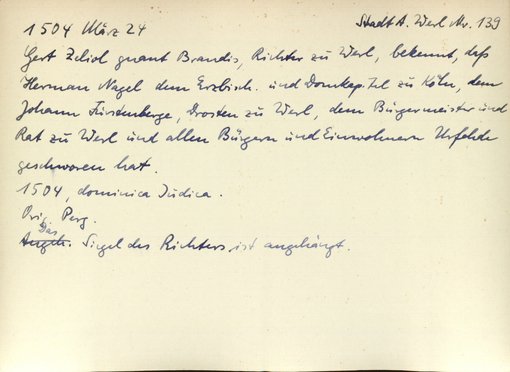 1504 März 24
Stadt A. Werl Nr. 139
Gert Zeliol gnant Brandis, Richter zu Werl, bekennt, daß
Herman Nagel dem Erzbisch. und Domkapitel zu Köln, dem
Johann Fürstenberge, Drosten zu Werl, dem Bürgermeister und
Rat zu Werl und allen Bürgern und Einwohnern Urfehde
geschworen hat.
1504, dominica Judica.
Ori. Perg.
Das Siegel des Richters ist angehängt.